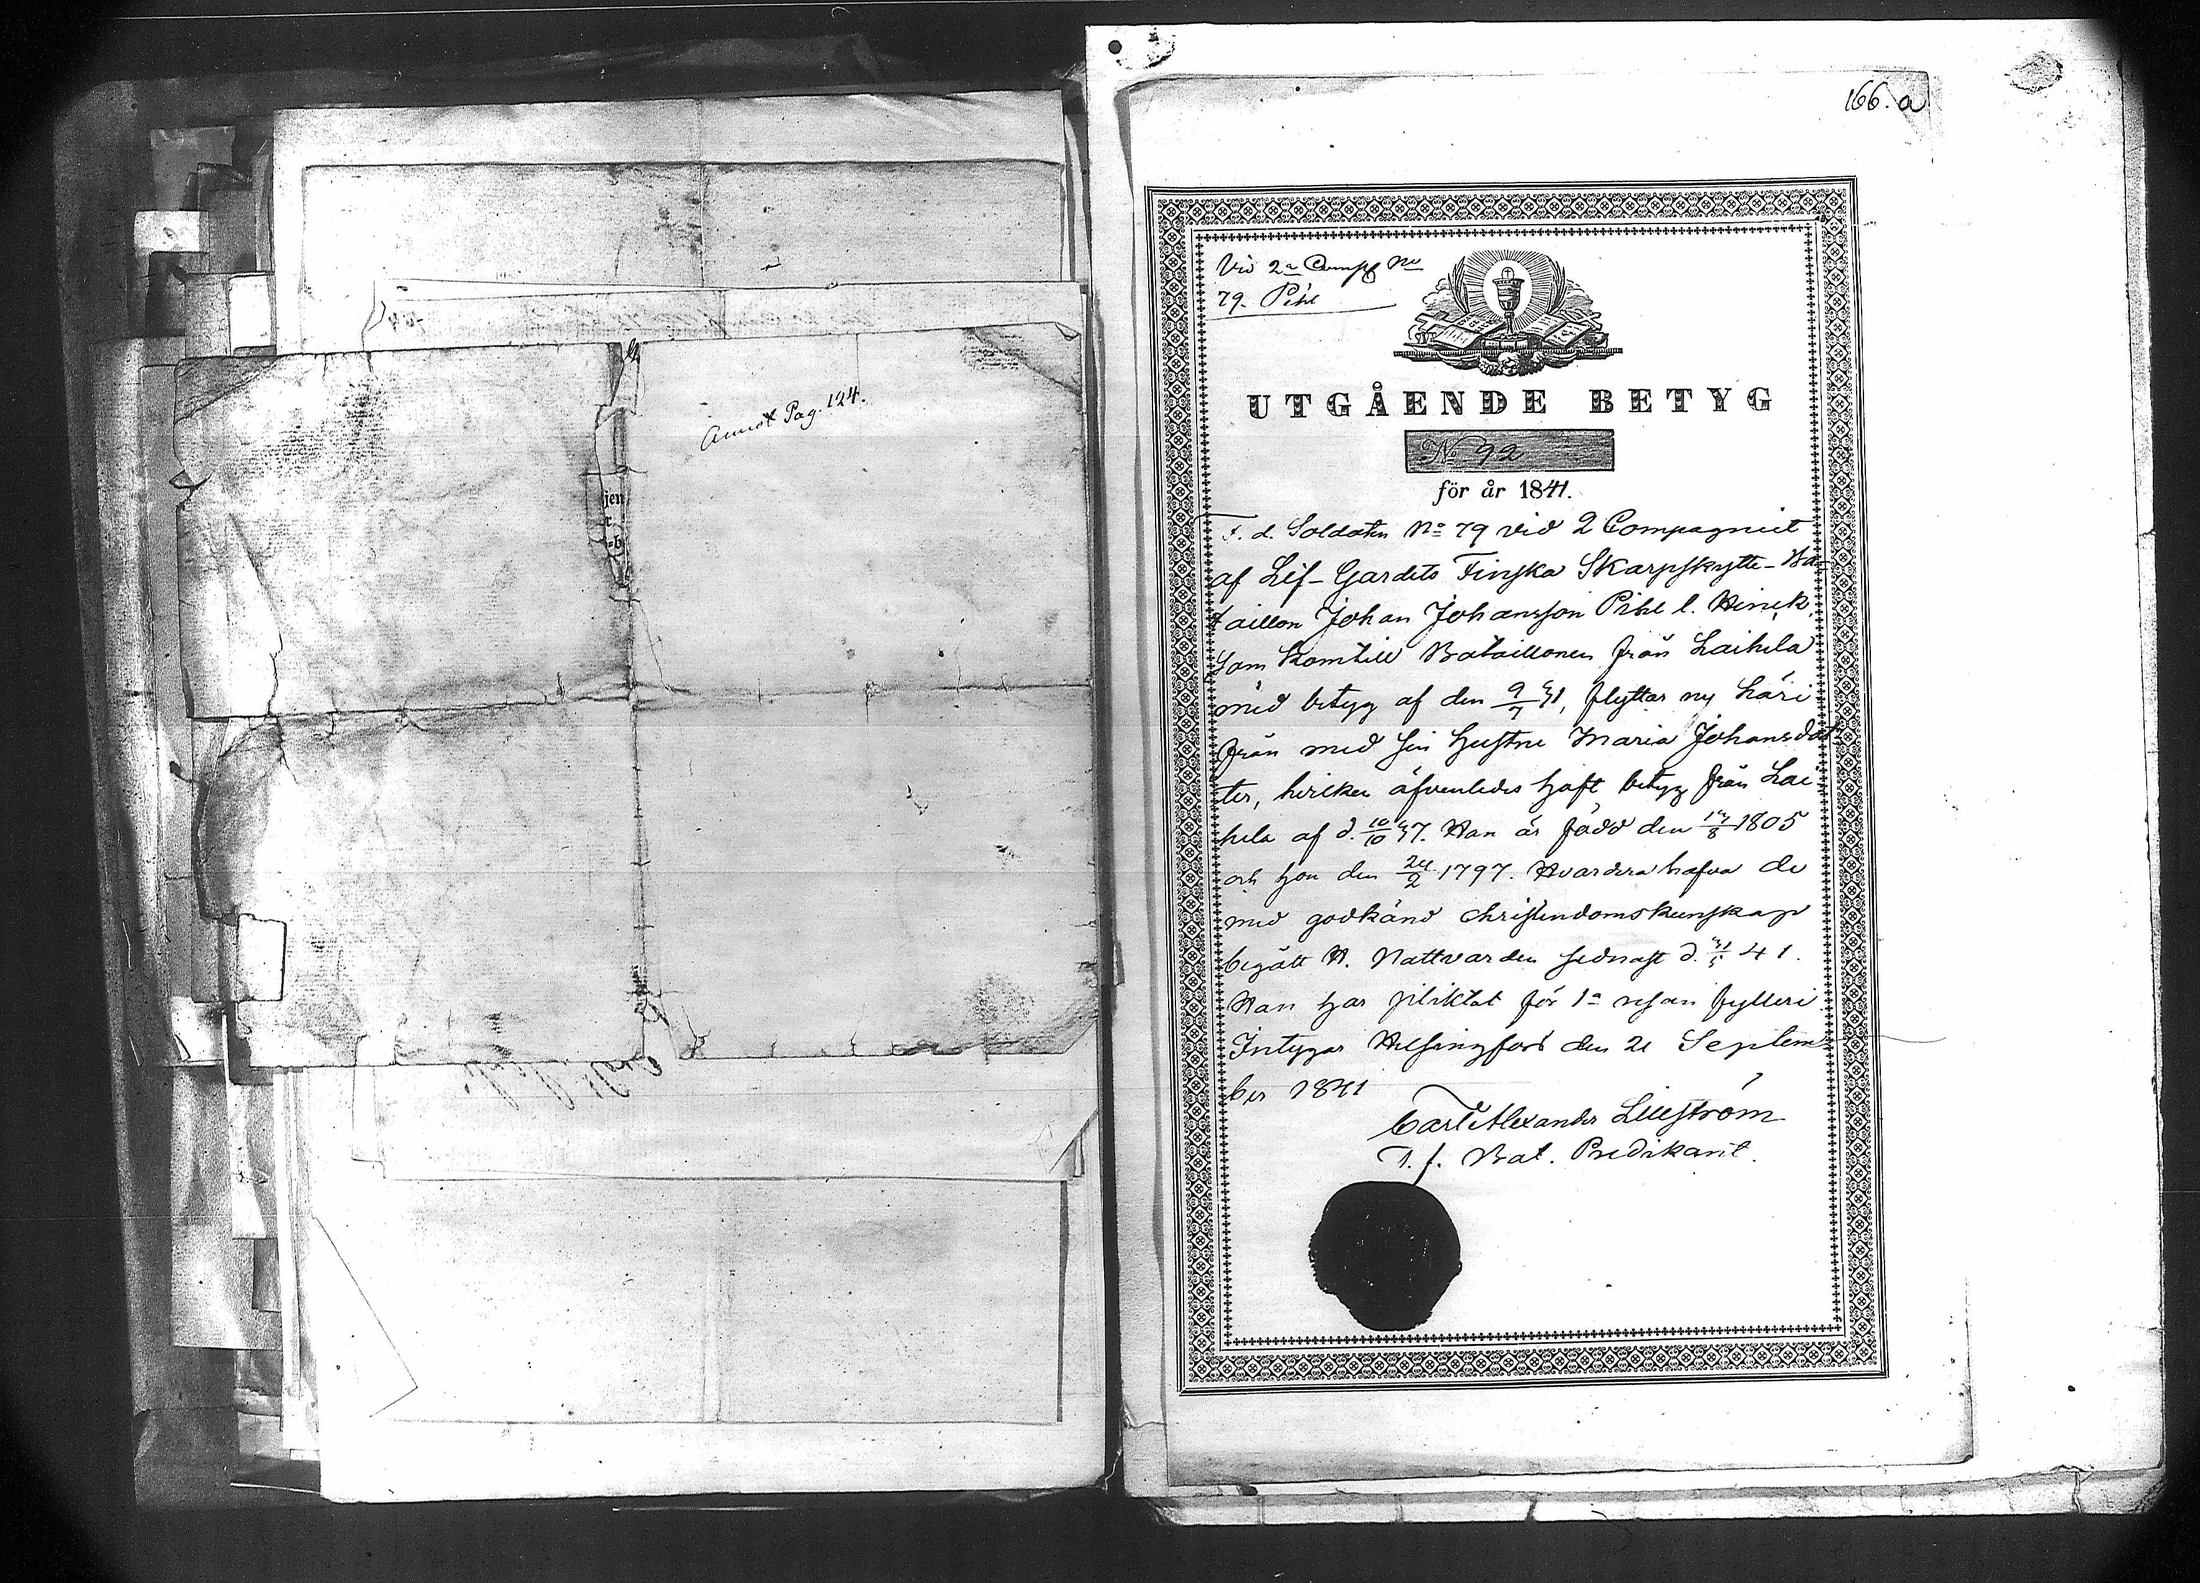 Annot Pag. 124.
jen
r
=b
166. a
Vid 2a Comp. No
79. Pihl
UTGÅENDE BETYG
No 92
för år 1841.
F. d. Soldaten No 79 vid 2 Compagniet
af Lif-Gardets Finska Skarpskytte-Ba-
taillon Johan Johansson Pihl l.
som kom till Bataillonen från Laihela
med betyg af den 9/7 31, flyttar nu häri-
från med sin Hustru Maria Johansdot-
ter, hvilken äfvenledes haft betyg från Lai-
hela af d. 10/10 37. Han är född den 13/8 1805
och hon den 24/2 1797. Hvardera hafva de
med godkänd christendomskunskap
begått H. Nattvarden sednast d. 31/5 41.
Han har pliktat för 1a resan fylleri
Intygar Helsingfors den 21 Septem-
ber 1841
Carl Alexander Lilljström
T. f. Bat. Predikant.